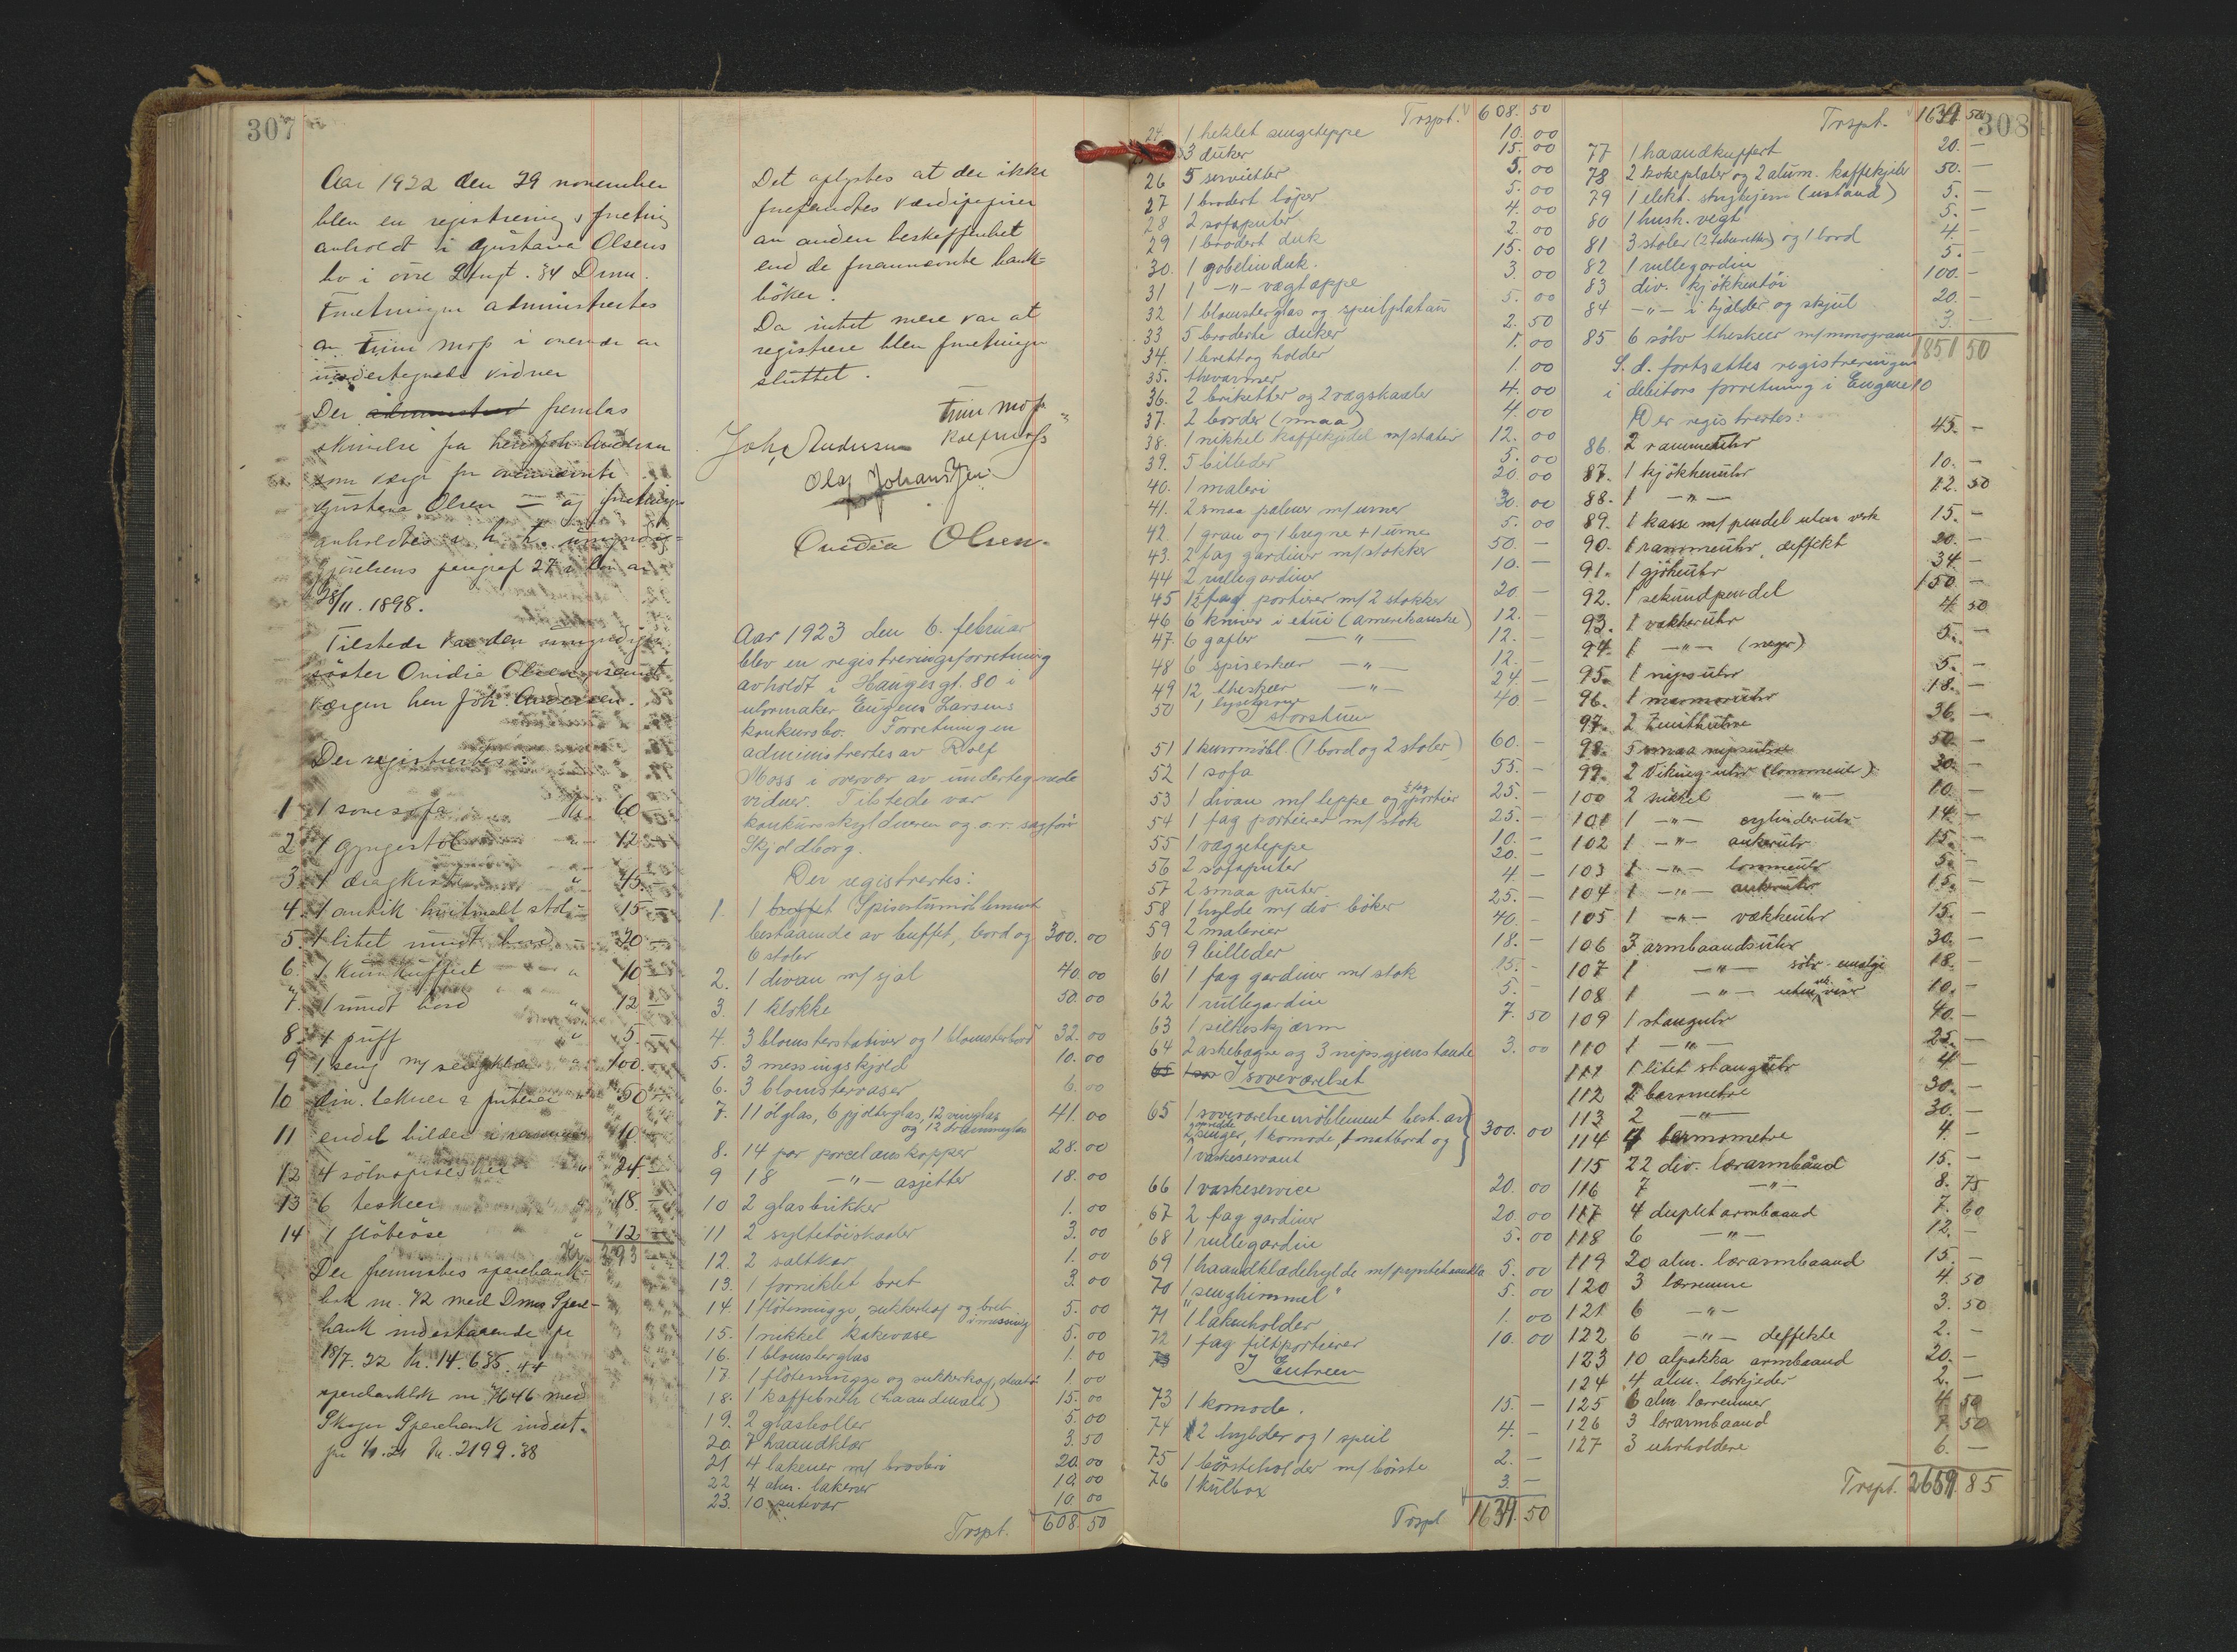 307
Aar 1922 den 29 november
blev en registrerings forretning
avholdt i Gustava Olsens
bo i øvre Storgt. 34 Drmn.
Forretningen administrertes
av Trine Moss i overvær av
undertegnede vidner
Der fremlas
skrivelse fra herr Joh. Andersen
som værge for ovennævnte
Gustava Olsen — og forretningen
avholdtes i h. t. umyndig-
gjørelsens paragraf 27 i lov av
28/11. 1898.
Tilstede var den umyndiges
søster Ovidia Olsen, samt
værgen herr Joh. Andersen.
Der registrertes:
1 1 sovesofa Kr. 60 —
2 1 gyngestol " 12 —
3. 1 dragkiste " 45. —
4. 1 antik hvitmalt stol " 15 —
5. 1 litet rundt bord " 20 —
6. 1 kuffert " 10 —
7. 1 rundt bord " 12 —
8. 1 puff " 5. —
9 1 seng m/ sengklær " 100. —
10 div. lakner & putevar " 50 —
11 endel bilder i rammer " 10. —
12 4 sølvspiseskeer " 24. —
13 6 teskeer " 18. —
14 1 fløteøse " 12 —
Kr. 393 —
Der fremvistes sparebank-
bok nr. 72 med Drms Spare-
bank indestaaende pr
18/7. 22 Kr. 14.635.44
sparebankbok nr 7646 med
Skoger Sparebank indest.
pr 1/1. 21 Kr. 2199.38
Det oplystes at der ikke
forefandtes værdipapirer
av anden beskaffenhet
end de foranævnte bank-
bøker.
Da intet mere var at
registrere blev forretningen
sluttet.
Trine Moss
Joh. Andersen
Olaf Johansen
Ovidia Olsen.
Aar 1923 den 6. februar
blev en registreringsforretning
avholdt i Haugesgt. 80 i
uhrmaker Eugene Larsens
konkursbo. Forretningen
administrertes av Rolf
Moss i overvær av undertegnede
vidner. Tilstede var
konkursskyldneren og o.r. sagfører
Skjoldborg.
Der registrertes:
1. 1 buffet Spisestuemøblement
bestaaende av buffet, bord og 300. 00
6 stoler
2. 1 divan m/ sjal 40 00
3. 1 klokke 50. 00
4. 3 blomsterstativer og 1 blomsterbord 32. 00
5. 3 messingskjold 10. 00
6. 3 blomstervaser 6. 00
7. 11 ølglas, 6 pjolterglas, 12 vinglas 41. 00
og 12 drammeglas
8. 14 par porcelanskopper 28. 00
9 18 —"— asjetter 18. 00
10 2 glasbrikker 1. 00
11 2 syltetøiskaaler 3. 00
12. 2 saltkar 1. 00
13. 1 forniklet bret 3. 00
14. 1 fløtemugge, sukkerkop og bret 5. 00
i messing
15. 1 nikkel kakevase 5. 00
16. 1 blomsterglas 1. 00
17. 1 fløtemugge og sukkerkop, 1. 00
18. 1 kaffebrett (haandmalt) 15. 00
19. 2 glasboller 5. 00
20 7 haandklær 3. 50
21 4 lakener m/ broderi 20. 00
22 4 alm. lakener 10. 00
23. 10 putevar 10. 00
Trspt. 608. 50
Trspt. 608. 50
24. 1 heklet sengeteppe 10. 00
3 duker 15. 00
26 5 servietter 5. 00
27 1 brodert løper 5. 00
28 2 sofaputer 4. 00
29 1 brodert duk 2. 00
30. 1 gobelinduk. 15. 00
31 1 —"— vægtæppe 3. 00
32 1 blomsterglas og speilplatau 5. 00
33 5 broderte duker 2. 50
34. 1 brett og holder 1. 00
35. thevarmer 1. 00
36. 2 briketter og 2 vægskaaler 4. 00
37. 2 border (smaa) 4. 00
38. 1 nikkel kaffekjedel m/stativ 12. 00
39. 5 billeder 5. 00
40. 1 maleri 20. 00
41. 2 smaa palmer m/urner 30. 00
42. 1 gran og 1 bregne + 1 urne 5. 00
43. 2 fag gardiner m/stokker 50. —
44 2 rullegardiner 10. —
45 1½ fag portierer m/ 2 stokker 20 —
46 6 kniver i etui (amerikanske) 12. —
47. 6 gafler —"— 12. —
48 6 spiseskeer —"— 12. —
49 12 theskeer —"— 24. —
50 1 lysekrone 40 —
I storstuen
51 1 kurvmøbl. (1 bord og 2 stoler) 60. —
52 1 sofa 55. —
53 1 divan m/ teppe og ½ fag portier 25. —
54 1 fag portierer m/ stok 25. —
55 1 væggeteppe 10. —
56 2 sofaputer 20. —
57 2 smaa puter 4 —
58 1 hylde m/ div bøker 25. —
59 2 malerier 40. —
60 9 billeder 18. —
61 1 fag gardiner m/ stok 15. —
62 1 rullegardin 5. —
63 1 silkeskjærm 7. 50
64 2 askebægre og 3 nipsgjenstande 3. 00
65 I soveværelset
65 1 soveværelsemøblement best. av
2 senger, 1 komode, 1 natbord og 300. 00
1 vaskeservant
66 1 vaskeservice 20. 00
67 2 fag gardiner 20. 00
68 1 rullegardin 5. 00
69 1 haandklædehylde m/pyntehaandkl. 5. 00
70 1 "senghimmel" 5. 00
71 1 lakenholder 1. 00
72 1 fag filtportierer 10. 00
73 I Entreen
73 1 komode. 15. —
74 2 hylder og 1 speil 4. —
75 1 børsteholder m/ børste 2. —
76 1 kulbox 3. —
Trspt 1639. 50
308
Trspt. 1639. 50
77 1 haandkuffert 20. —
78 2 kokeplater og 2 alum. kaffekjeler 50. —
79 1 elekt. strykejern (istand) 5. —
80 1 hush. vegt 5. —
81 3 stoler (2 taburetter) og 1 bord 4. —
82 1 rullegardin 5. —
83 div. kjøkkentøi 100. —
84 —"— i kjelder og skjul 20. —
85 6 sølv theskeer m/monogram 3. —
1851 50
S. d. fortsattes registreringen
i debitors forretning i Engene 10
Der registrertes:
86. 2 rammeuhr 45. —
87. 1 kjøkkenuhr 10. —
88. 1 —"— 12. 50
89. 1 kasse m/ pendel uten verk 15. —
90. 1 rammeuhr, deffekt 20. —
91. 1 gjøkeuhr 34. —
92. 1 sekundpendel 150. —
93. 1 vækkeruhr 4. 50
94. 1 —"— (neger) 5. —
95. 1 nipsuhr 5. —
96. 1 marmoruhr 18. —
97. 2 Zenithuhre 36. —
98. 5 smaa nipsuhre 50. —
99. 2 Viking-uhr (lommeuhr) 30. —
100 2 nikkel —"— 10. —
101 1 —"— cylinderuhr 14. —
102 1 —"— ankeruhr 15. —
103 1 —"— lommeuhr 5. —
104 1 —"— ankeruhr 15. —
105 1 —"— vækkeuhr 15. —
106 3 armbaandsuhr 30. —
107 1 —"— sølv emalje 18. —
108 1 —"— uten viser 10. —
109 1 stanguhr 40. —
110 1 —"— 25. —
111 1 litet stanguhr 4 —
112 2 barometre 30. —
113 2 —"— 30. —
114 4 termometre 4. —
115 22 div. lærarmbånd 15. —
116 7 —"— 8. 75
117 4 duplet armbaand 7. 60
118 6 —"— 12. —
119 20 alm. lærarmbaand 15. —
120 3 lærremme 4. 50
121 6 —"— 3. 50
122 6 —"— deffekte 2. —
123 10 alpakka armbaand 20. —
124 4 alm. lærkjeder 2. —
125 6 alm lærremmer 4. 50
126 3 lærarmbaand 7. 50
127 3 uhrholdere 6. —
Trspt. 2659. 85